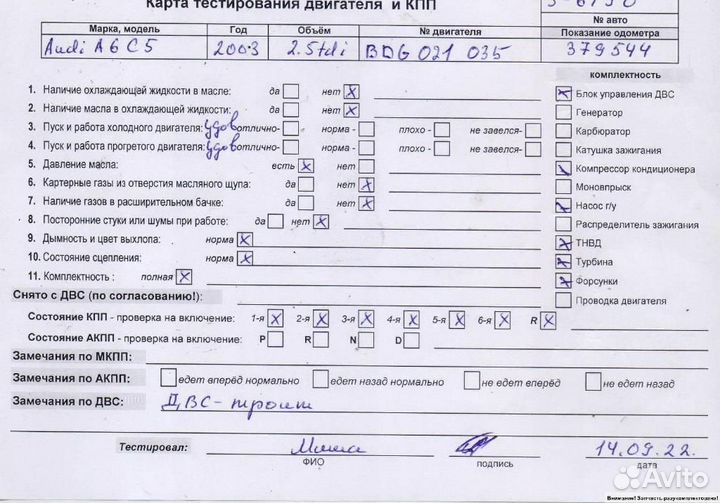 Карта тестирования двигателя и КПП
№ авто
Марка, модель Год Объём № двигателя Показание одометра
Audi A6 C5 2003 2.5tdi BDG 021 035 379544
комплектность
1. Наличие охлаждающей жидкости в масле: да нет X
X Блок управления ДВС
2. Наличие масла в охлаждающей жидкости: да нет X
Генератор
3. Пуск и работа холодного двигателя: удов отлично- норма - плохо - не завелся-
Карбюратор
4. Пуск и работа прогретого двигателя: удов отлично- норма - плохо - не завелся-
Катушка зажигания
5. Давление масла: есть X нет
X Компрессор кондиционера
6. Картерные газы из отверстия масляного щупа: да нет X
Моновпрыск
7. Наличие газов в расширительном бачке: да нет X
X Насос г/у
8. Посторонние стуки или шумы при работе: да нет X
Распределитель зажигания
9. Дымность и цвет выхлопа: норма X
X ТНВД
10. Состояние сцепления: норма X
X Турбина
11. Комплектность : полная X
X Форсунки
Снято с ДВС (по согласованию!):
Проводка двигателя
Состояние КПП - проверка на включение: 1-я X 2-я X 3-я X 4-я X 5-я X 6-я X R X
Состояние АКПП - проверка на включение: P R N D
Замечания по МКПП:
Замечания по АКПП: едет вперёд нормально едет назад нормально не едет вперёд не едет назад
Замечания по ДВС: ДВС-троит
Тестировал: Миша 14.09.22.
ФИО подпись дата
Avito
Внимание! Запчасть разукомплектована!